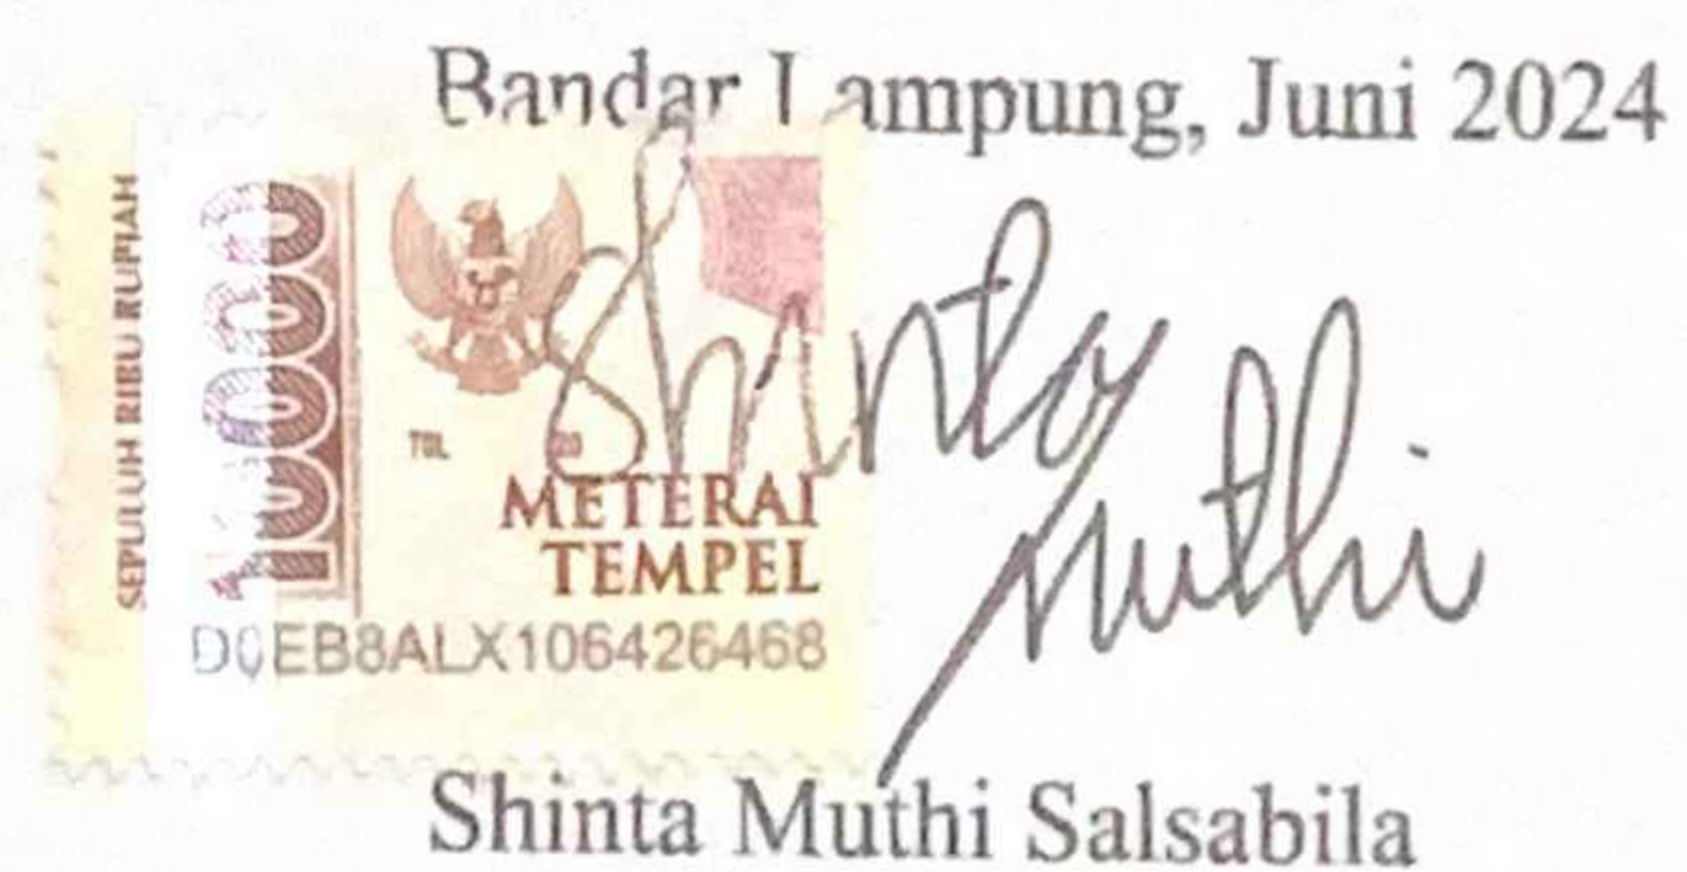 Bandar Lampung, Juni 2024
SEPULUH RIBU RUPIAH
10000
TGL
20
METERAI
TEMPEL
D0EB8ALX106426468
Shinta
Muthi
Shinta Muthi Salsabila